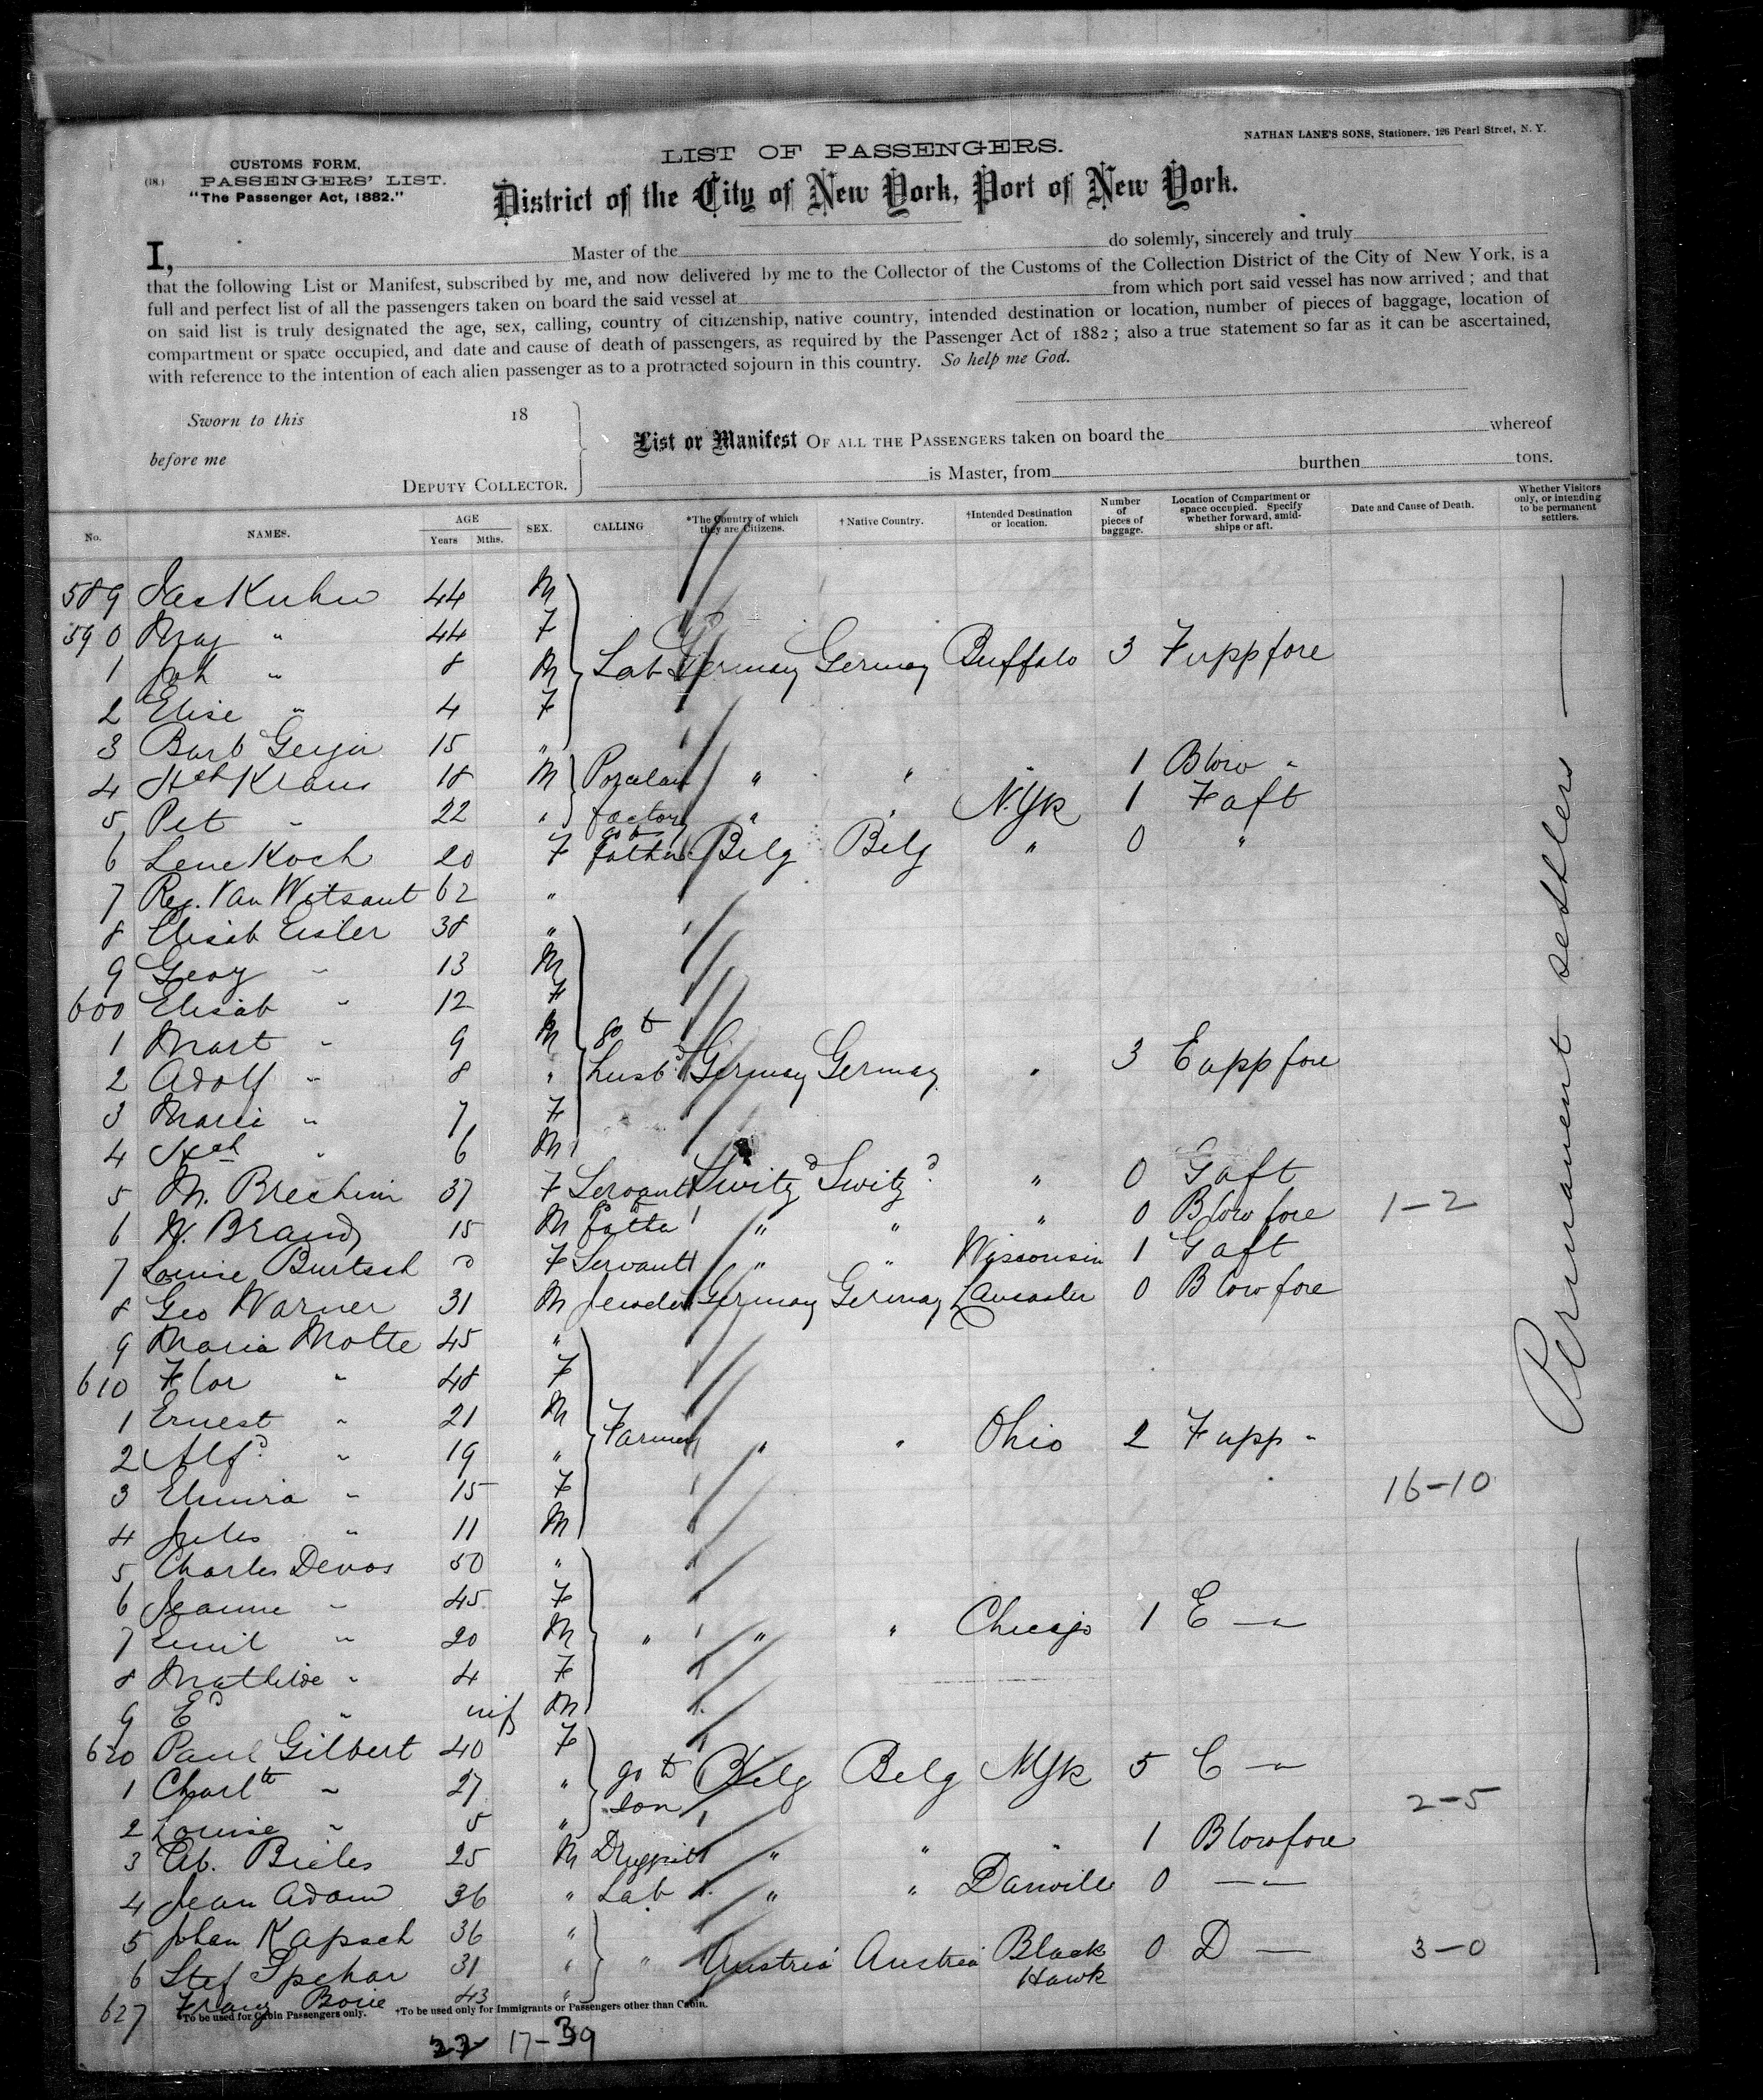 NATHAN LANE'S SONS, Stationers, 126 Pearl Street, N. Y.
(18.)
CUSTOMS FORM,
PASSENGERS' LIST.
"The Passenger Act, 1882."
LIST OF PASSENGERS.
District of the City of New York, Port of New York.
I, Master of the do solemly, sincerely and truly
that the following List or Manifest, subscribed by me, and now delivered by me to the Collector of the Customs of the Collection District of the City of New York, is a
full and perfect list of all the passengers taken on board the said vessel at from which port said vessel has now arrived ; and that
on said list is truly designated the age, sex, calling, country of citizenship, native country, intended destination or location, number of pieces of baggage, location of
compartment or space occupied, and date and cause of death of passengers, as required by the Passenger Act of 1882 ; also a true statement so far as it can be ascertained,
with reference to the intention of each alien passenger as to a protracted sojourn in this country. So help me God.
Sworn to this 18
before me
DEPUTY COLLECTOR.
List or Manifest OF ALL THE PASSENGERS taken on board the whereof
is Master, from burthen tons.
No. NAMES. AGE Years Mths. SEX. CALLING *The Country of which they are Citizens. † Native Country. †Intended Destination or location. Number of pieces of baggage. Location of Compartment or space occupied. Specify whether forward, amidships or aft. Date and Cause of Death. Whether Visitors only, or intending to be permanent settlers.
589 Jac Kuhn 44 M
590 Mag " 44 F
1 Joh " 8 M Lab Germany Germany Buffalo 3 F upp fore
2 Elise " 4 F
3 Barb 15 "
4 Hch Kraus 18 M Porcelain " " 1 B low "
5 Pet " 22 " factory " " N.Yk 1 F aft
6 Lene Koch 20 F go to father Belg Belg " 0 "
7 Reg. Van Wetsant 62 "
8 Elisab Eisler 38 "
9 Georg " 13 M
600 Elisab " 12 F
1 Mart " 9 M go to
2 Adolf " 8 " husbd Germany Germany " 3 E upp fore
3 Maria " 7 F
4 Hch " 6 M
5 M. Brechim 37 F Servant Switzd Switzd " 0 G aft
6 W. Brand 15 M father " " " 0 B low fore 1-2
7 Louise Burtsch F Servant " " Wisconsin 1 G aft
8 Geo Warner 31 M Jeweler Germany Germany Lancaster 0 B low fore
9 Maria Motte 45 "
610 Flor " 48 F
1 Ernest " 21 M
2 Alfd " 19 " Farmer " " Ohio 2 F upp "
3 Elmira " 15 F 16-10
4 Jules " 11 M
5 Charles Devos 50 "
6 Jeanne " 45 F
7 Emil " 20 M " " " Chicago 1 E — "
8 Mathilde " 4 F
9 Ed " inf M
620 Paul Gilbert 40 F
1 Charltte " 27 " go to son Belg Belg N.Yk 5 C — "
2 Louise " 5 " 2-5
3 Bieles 25 M Druggist " " " 1 B low fore
4 Jean Adam 36 " Lab " " Danville 0 — " —
5 Johan Kapsch 36 "
6 Stef Spehar 31 " " Austria Austria Black Hawk 0 D — 3-0
627 Franz 43 "
Permanent settlers
*To be used for Cabin Passengers only. †To be used only for Immigrants or Passengers other than Cabin.
22 17-39